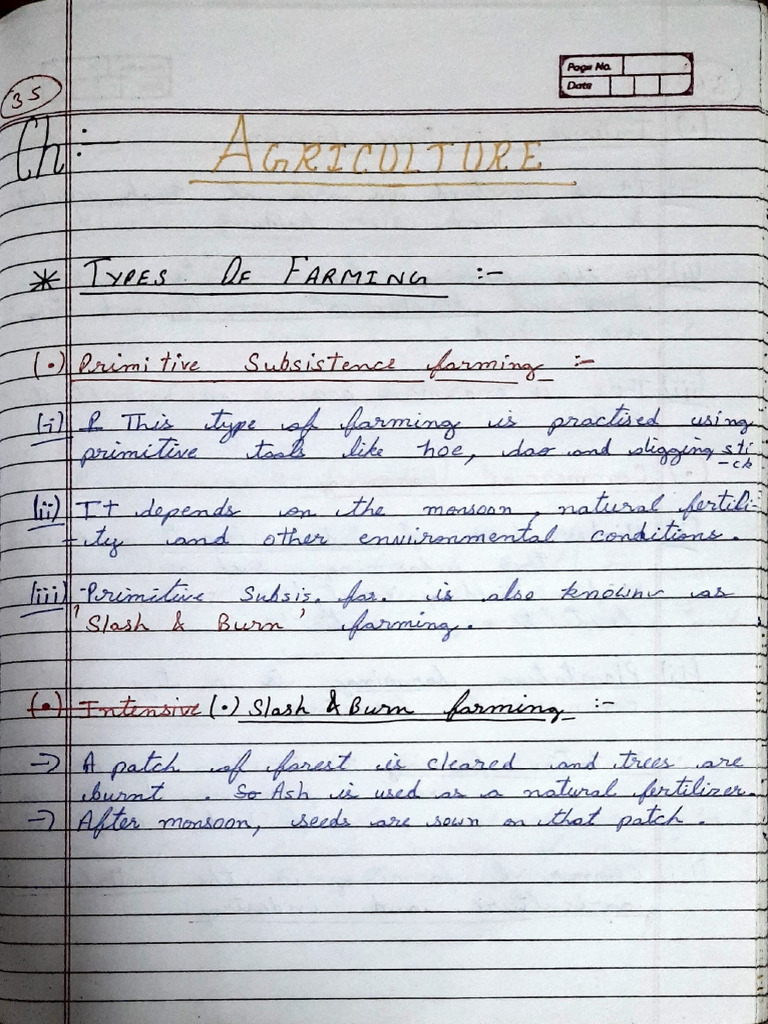 Page No.
Date
35
Ch :- AGRICULTURE
* TYPES OF FARMING :-
(•) Primitive Subsistence farming :-
(i) This type of farming is practised using
primitive tools like hoe, dao and digging sti
-ck
(ii) It depends on the monsoon, natural fertili-
-ty and other environmental conditions.
(iii) Primitive Subsis. far. is also known as
'Slash & Burn' farming.
(•) Intensive (•) Slash & Burn farming :-
→ A patch of forest is cleared and trees are
burnt . So Ash is used as a natural fertilizer.
→ After monsoon, seeds are sown on that patch.